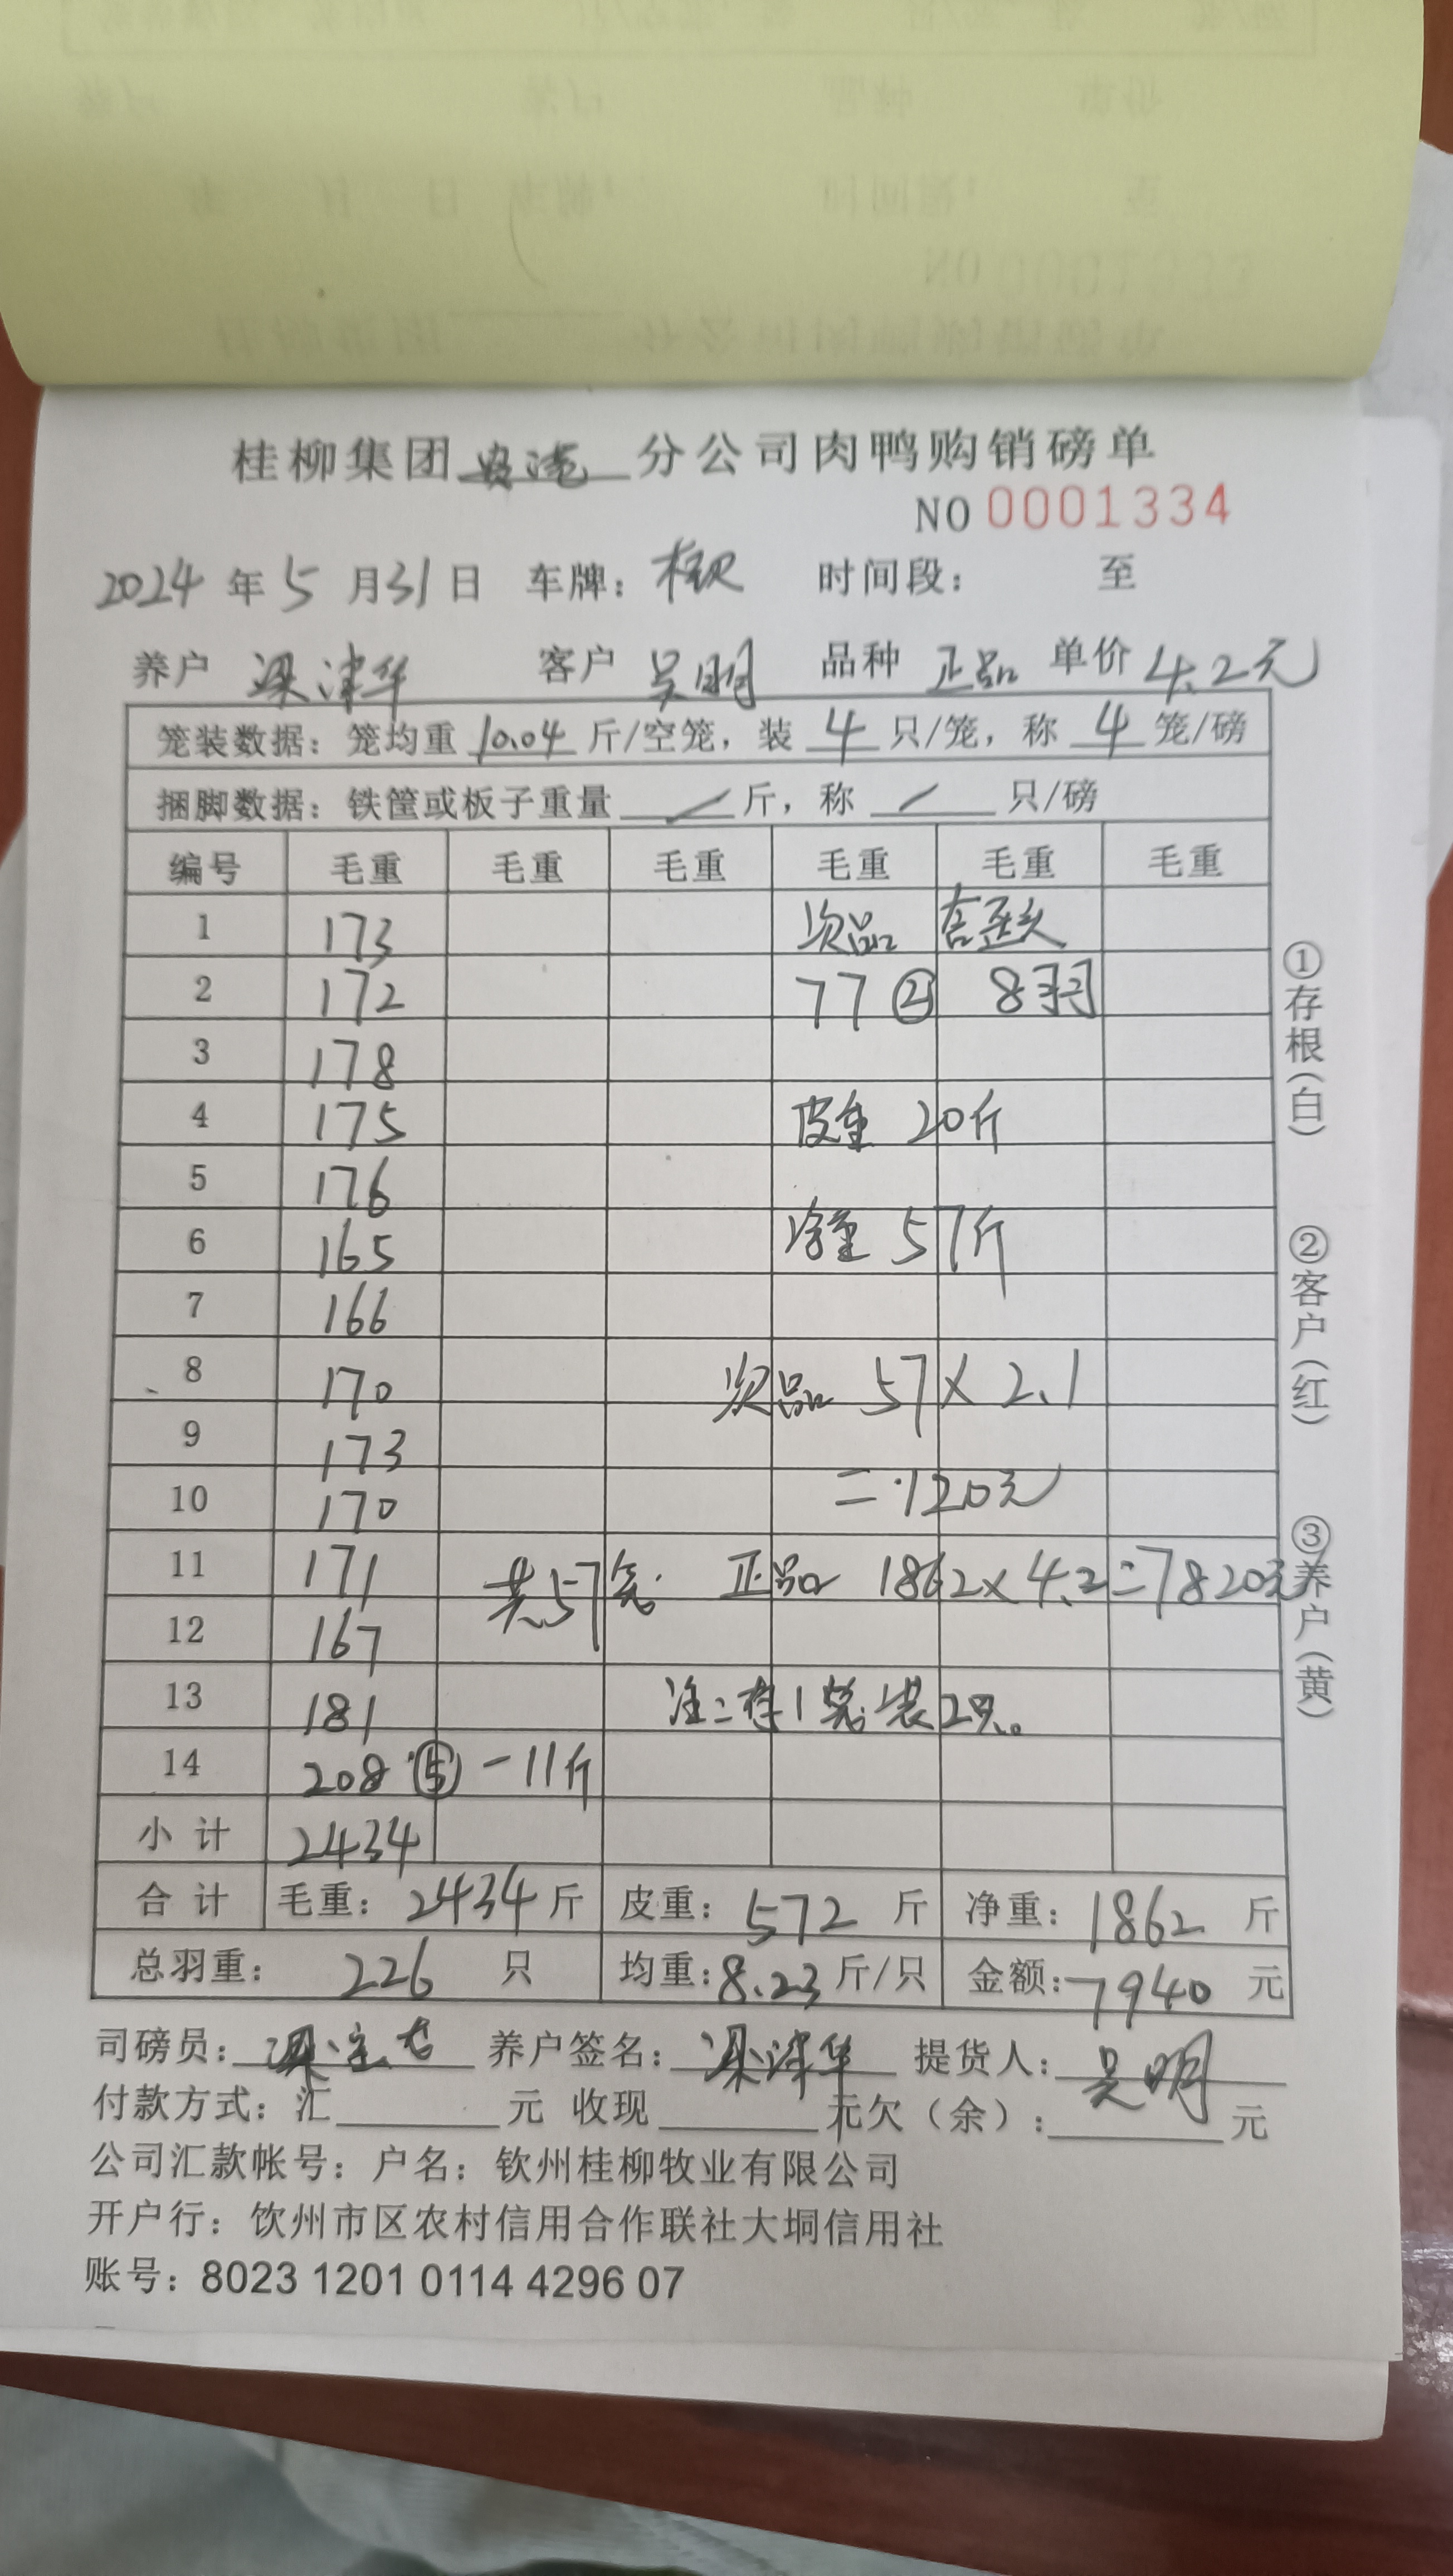 桂柳集团 分公司肉鸭购销磅单
NO 0001334
2024 年 5 月 31 日 车牌： 时间段： 至
养户 梁津华 客户 吴明 品种 正品 单价 4.2元
笼装数据：笼均重 10.04 斤/空笼，装 4 只/笼，称 4 笼/磅
捆脚数据：铁筐或板子重量 / 斤，称 / 只/磅
编号 毛重 毛重 毛重 毛重 毛重 毛重
1 173 次品 含歪头
2 172 77 ② 8羽
3 178
4 175 皮重 20斤
5 176
6 165 净重 57斤
7 166
8 170 次品 57×2.1
9 173
10 170 =120元
11 171 共57笼 正品 1862×4.2=7820元
12 167
13 181 注：有1笼装2只。
14 208 ⑤ -11斤
小计 2434
合计 毛重：2434 斤 皮重：572 斤 净重：1862 斤
总羽重：226 只 均重：8.23 斤/只 金额：7940 元
司磅员： 养户签名：梁津华 提货人：吴明
付款方式：汇 元 收现 元欠（余）： 元
公司汇款帐号：户名：钦州桂柳牧业有限公司
开户行：饮州市区农村信用合作联社大垌信用社
账号：8023 1201 0114 4296 07
①存根（白）
②客户（红）
③养户（黄）